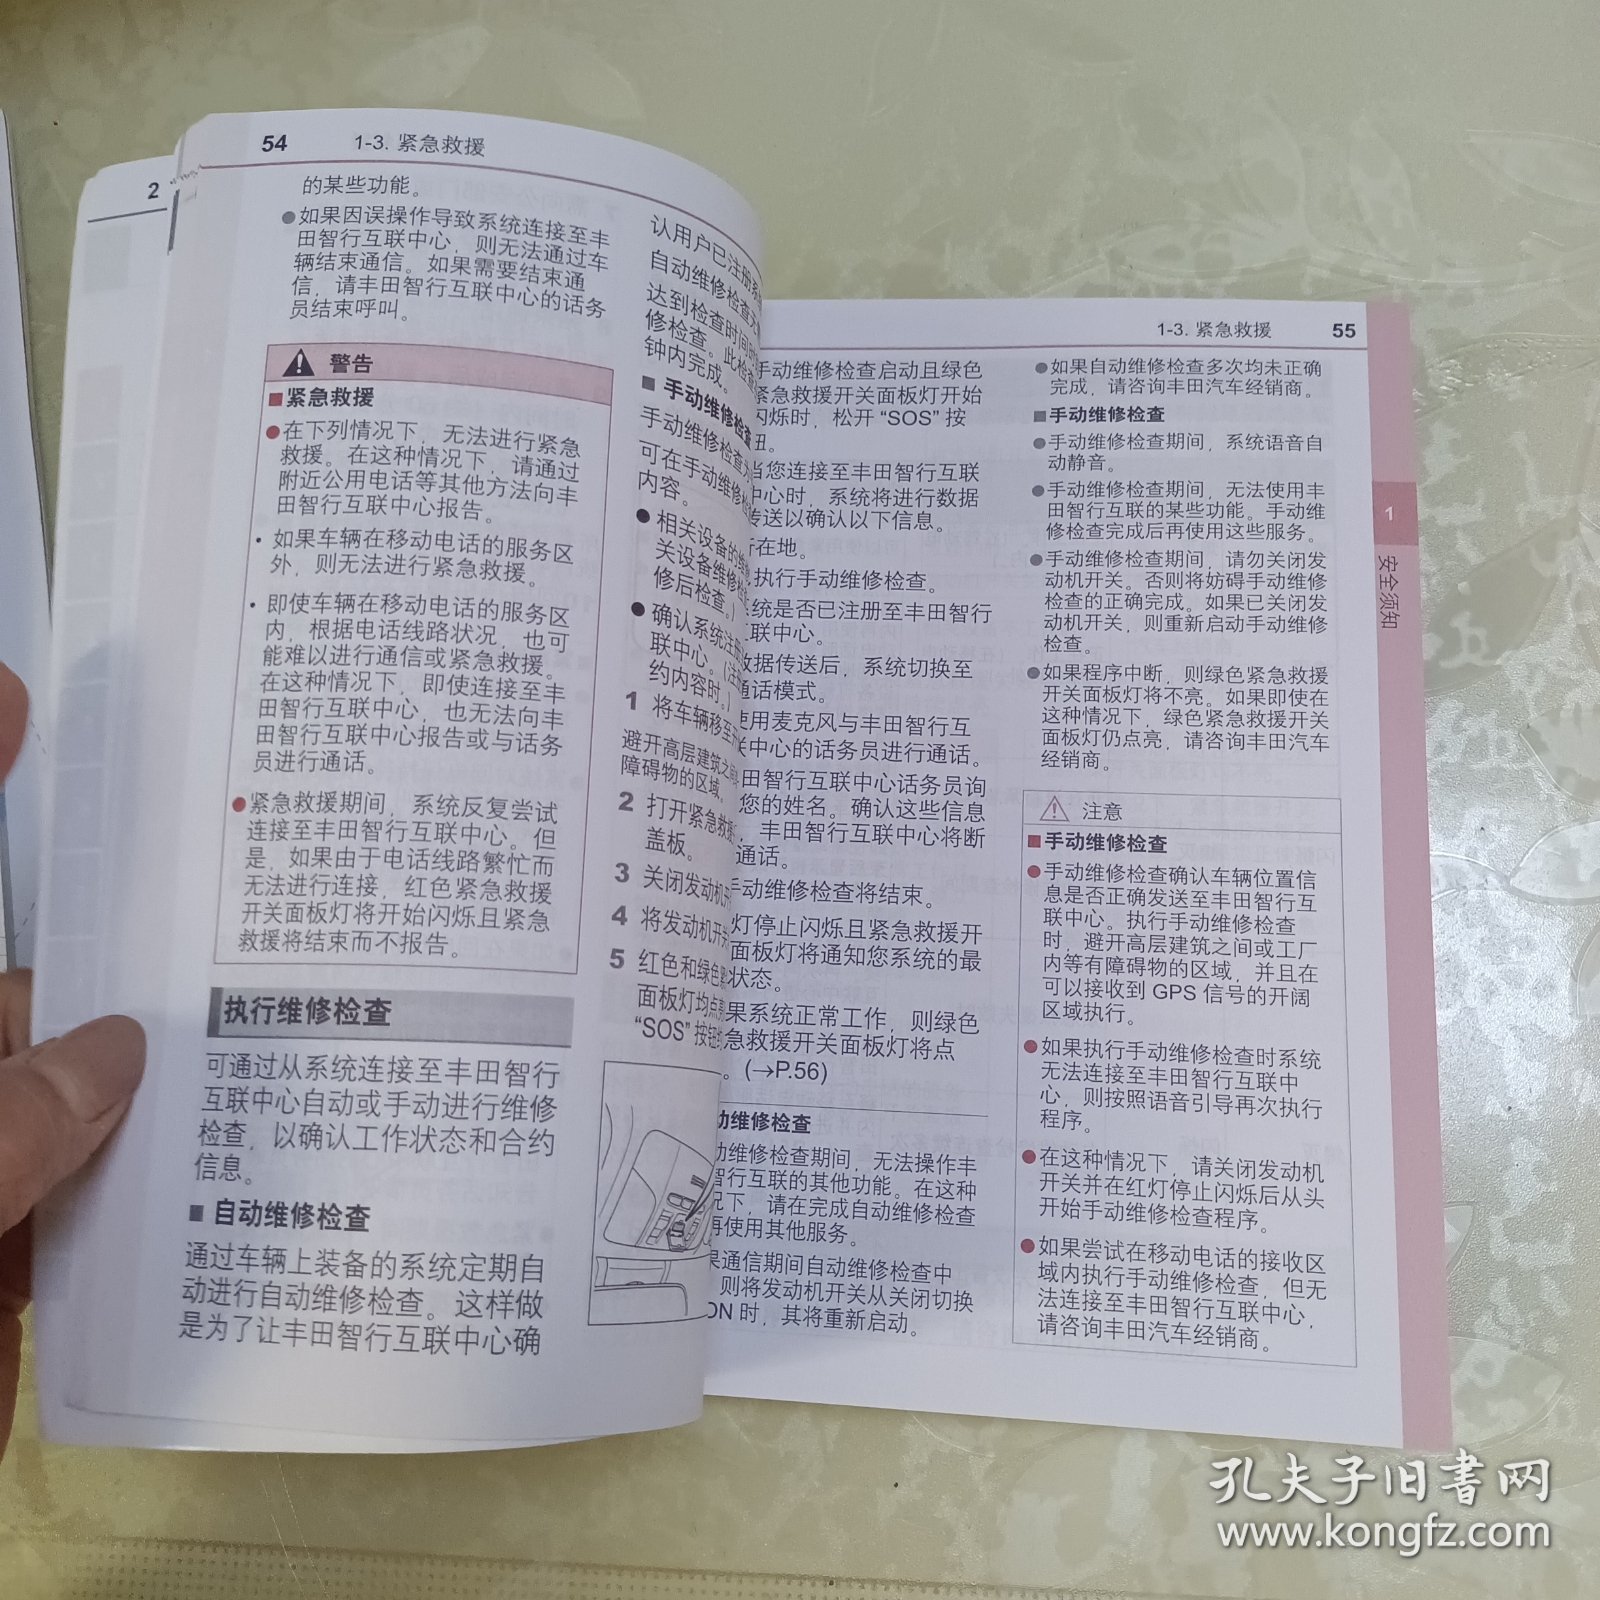 2
54
1-3. 紧急救援
的某些功能。
●如果因误操作导致系统连接至丰
田智行互联中心，则无法通过车
辆结束通信。如果需要结束通
信，请丰田智行互联中心的话务
员结束呼叫。
警告
■紧急救援
●在下列情况下，无法进行紧急
救援。在这种情况下，请通过
附近公用电话等其他方法向丰
田智行互联中心报告。
· 如果车辆在移动电话的服务区
外，则无法进行紧急救援。
· 即使车辆在移动电话的服务区
内，根据电话线路状况，也可
能难以进行通信或紧急救援。
在这种情况下，即使连接至丰
田智行互联中心，也无法向丰
田智行互联中心报告或与话务
员进行通话。
●紧急救援期间，系统反复尝试
连接至丰田智行互联中心。但
是，如果由于电话线路繁忙而
无法进行连接，红色紧急救援
开关面板灯将开始闪烁且紧急
救援将结束而不报告。
执行维修检查
可通过从系统连接至丰田智行
互联中心自动或手动进行维修
检查，以确认工作状态和合约
信息。
■ 自动维修检查
通过车辆上装备的系统定期自
动进行自动维修检查。这样做
是为了让丰田智行互联中心确
认用户已注册系
自动维修检查大
达到检查时间时
修检查。此检查
钟内完成。
■ 手动维修检查
手动维修检查
可在手动维修检
内容。
● 相关设备的维
关设备维修检
修后检查。)
● 确认系统注册
联中心。(注
约内容时。)
1 将车辆移至开
避开高层建筑之间
障碍物的区域。
2 打开紧急救援
盖板。
3 关闭发动机开
4 将发动机开关
5 红色和绿色紧
面板灯均点亮
“SOS” 按钮
1-3. 紧急救援
55
手动维修检查启动且绿色
紧急救援开关面板灯开始
闪烁时，松开 “SOS” 按
钮。
当您连接至丰田智行互联
中心时，系统将进行数据
传送以确认以下信息。
所在地。
执行手动维修检查。
系统是否已注册至丰田智行
互联中心。
数据传送后，系统切换至
通话模式。
使用麦克风与丰田智行互
联中心的话务员进行通话。
田智行互联中心话务员询
您的姓名。确认这些信息
，丰田智行互联中心将断
通话。
手动维修检查将结束。
灯停止闪烁且紧急救援开
面板灯将通知您系统的最
状态。
果系统正常工作，则绿色
急救援开关面板灯将点
。(→P.56)
动维修检查
动维修检查期间，无法操作丰
智行互联的其他功能。在这种
况下，请在完成自动维修检查
再使用其他服务。
果通信期间自动维修检查中
，则将发动机开关从关闭切换
ON 时，其将重新启动。
●如果自动维修检查多次均未正确
完成，请咨询丰田汽车经销商。
■手动维修检查
●手动维修检查期间，系统语音自
动静音。
●手动维修检查期间，无法使用丰
田智行互联的某些功能。手动维
修检查完成后再使用这些服务。
●手动维修检查期间，请勿关闭发
动机开关。否则将妨碍手动维修
检查的正确完成。如果已关闭发
动机开关，则重新启动手动维修
检查。
●如果程序中断，则绿色紧急救援
开关面板灯将不亮。如果即使在
这种情况下，绿色紧急救援开关
面板灯仍点亮，请咨询丰田汽车
经销商。
注意
■手动维修检查
●手动维修检查确认车辆位置信
息是否正确发送至丰田智行互
联中心。执行手动维修检查
时，避开高层建筑之间或工厂
内等有障碍物的区域，并且在
可以接收到 GPS 信号的开阔
区域执行。
●如果执行手动维修检查时系统
无法连接至丰田智行互联中
心，则按照语音引导再次执行
程序。
●在这种情况下，请关闭发动机
开关并在红灯停止闪烁后从头
开始手动维修检查程序。
●如果尝试在移动电话的接收区
域内执行手动维修检查，但无
法连接至丰田智行互联中心，
请咨询丰田汽车经销商。
1
安全须知
孔夫子旧书网
www.kongfz.com